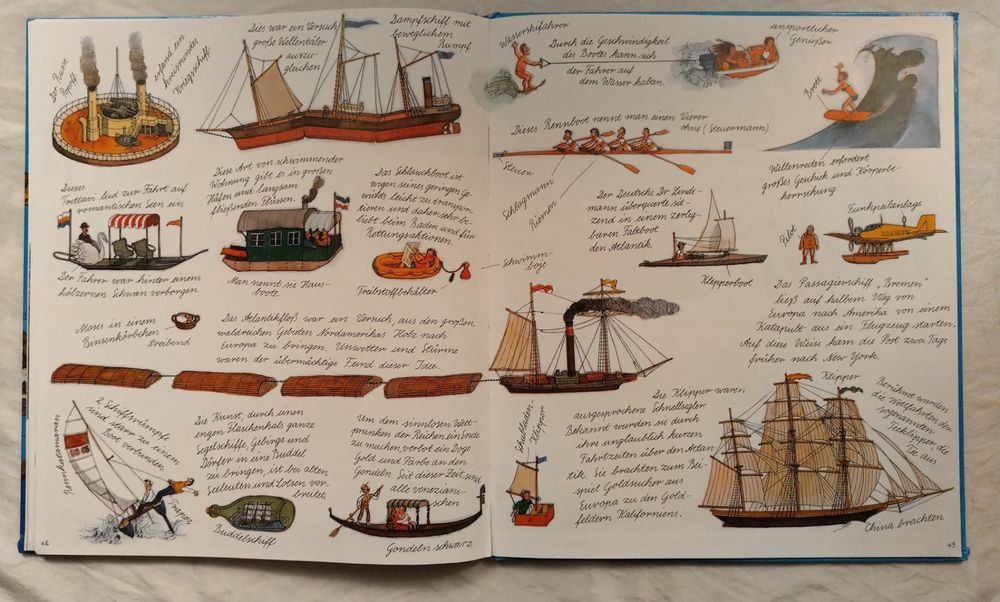 Der Russe
Popoff
erfand ein
kreisrundes
Kriegsschiff
Dies war ein Versuch,
große Wellentäler
auszu-
gleichen
Dampfschiff mit
beweglichem
Rumpf
Dieses
Trettaxi lud zur Fahrt auf
romantischen Seen ein
Der Fahrer war hinter einem
hölzernen Schwan verborgen.
Diese Art von schwimmender
Wohnung gibt es in großen
Häfen und langsam
fließenden Flüssen.
Man nennt sie Haus-
boote.
Das Schlauchboot ist
wegen seines geringen Ge-
wichts leicht zu transpor-
tieren und daher sehr be-
liebt beim Baden und für
Rettungsaktionen.
Treibstoffbehälter
Schwimm-
boje
Moses in einem
Binsenkörbchen
treibend
Das Atlantikfloß war ein Versuch, aus den großen,
waldreichen Gebieten Nordamerikas Holz nach
Europa zu bringen. Unwetter und Stürme
waren der übermächtige Feind dieser Idee.
Rennkatamaran
2 Schiffsrümpfe
sind starr zu einem
Boot verbunden
Trapez
Die Kunst, durch einen
engen Flaschenhals ganze
Segelschiffe, Gebirge und
Dörfer in eine Buddel
zu bringen, ist bei alten
Seeleuten und Lotsen ver-
breitet.
Buddelschiff
Um dem sinnlosen Wett-
prunken der Reichen ein Ende
zu machen, verbot ein Doge
Gold und Farbe an den
Gondeln. Seit dieser Zeit sind
alle veneziani-
schen
Gondeln schwarz.
42
Wasserskifahrer
Durch die Geschwindigkeit
des Bootes kann sich
der Fahrer auf
dem Wasser halten.
unsportlicher
Genießer
Brett
Dieses Rennboot nennt man einen Vierer
ohne (Steuermann)
Steuer
Schlagmann
Riemen
Wellenreiten erfordert
großes Geschick und Körperbe-
herrschung
Der Deutsche Dr. Linde-
mann überquerte sit-
zend in einem zerleg-
baren Faltboot
den Atlantik.
Klepperboot
Funkpeilanlage
Pilot
Das Passagierschiff „Bremen"
ließ auf halbem Weg von
Europa nach Amerika von einem
Katapult aus ein Flugzeug starten.
Auf diese Weise kam die Post zwei Tage
früher nach New York.
Schubladen-
Klipper
Die Klipper waren
ausgesprochene Schnellsegler
Bekannt wurden sie durch
ihre unglaublich kurzen
Fahrtzeiten über den Atlan
tik. Sie brachten zum Bei-
spiel Goldsucher aus
Europa zu den Gold-
feldern Kaliforniens.
Klipper
Berühmt wurden
die Wettfahrten der
sogenannten
Teeklipper, die
Tee aus
China brachten
43